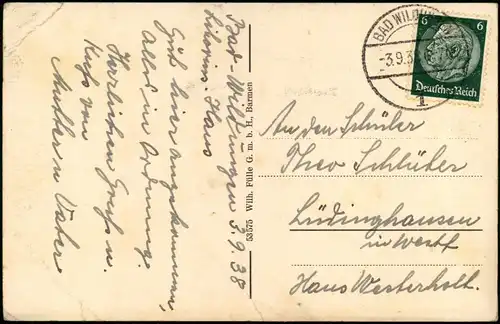 Bad-Wildungen 3.9.38
Liborius-Haus
Gut hier angekommen,
Alles in Ordnung.
Herzlichen Gruß u.
Kuß von
Mutter u Vater
53575 Wilh. Fülle G. m. b. H., Barmen
BAD WILDUN
-3.9.3
6 6
Deutsches Reich
An den Schüler
Theo Schlüter
Lüdinghausen
in Westf
Haus Westerholt.